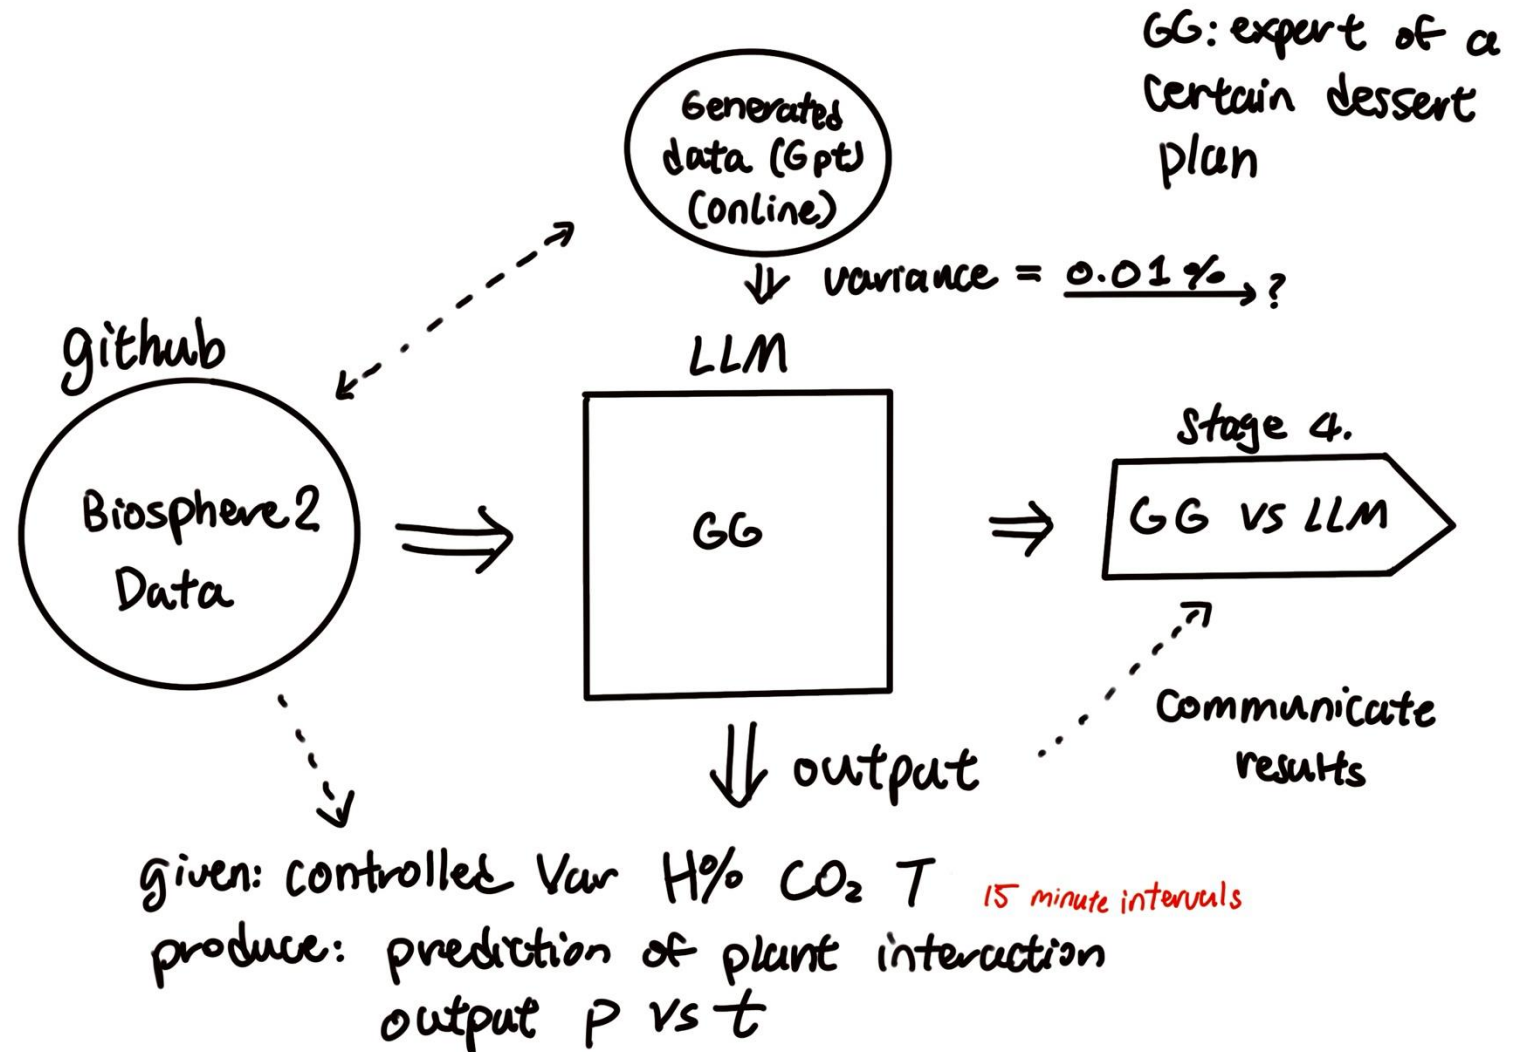 GG: expert of a
certain dessert
plan
Generated
data (Gpt)
(online)
variance = 0.01% ?
github
LLM
Biosphere2
Data
GG
Stage 4.
GG vs LLM
output
communicate
results
given: controlled Var H% CO₂ T 15 minute intervals
produce: prediction of plant interaction
output P vs t